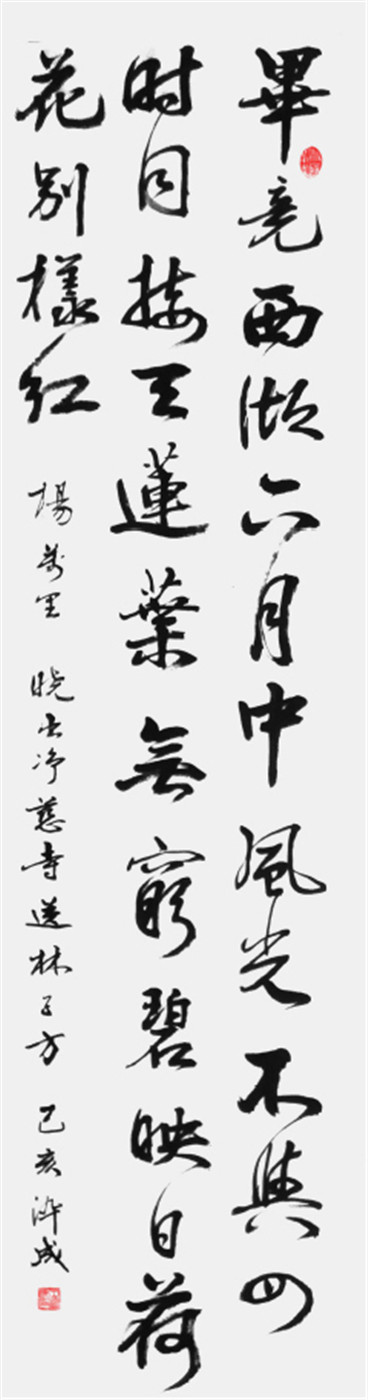 畢竟西湖六月中風光不與四
时同接天蓮葉無窮碧映日荷
花别樣红
楊萬里 晓出净慈寺送林子方 己亥 洪成